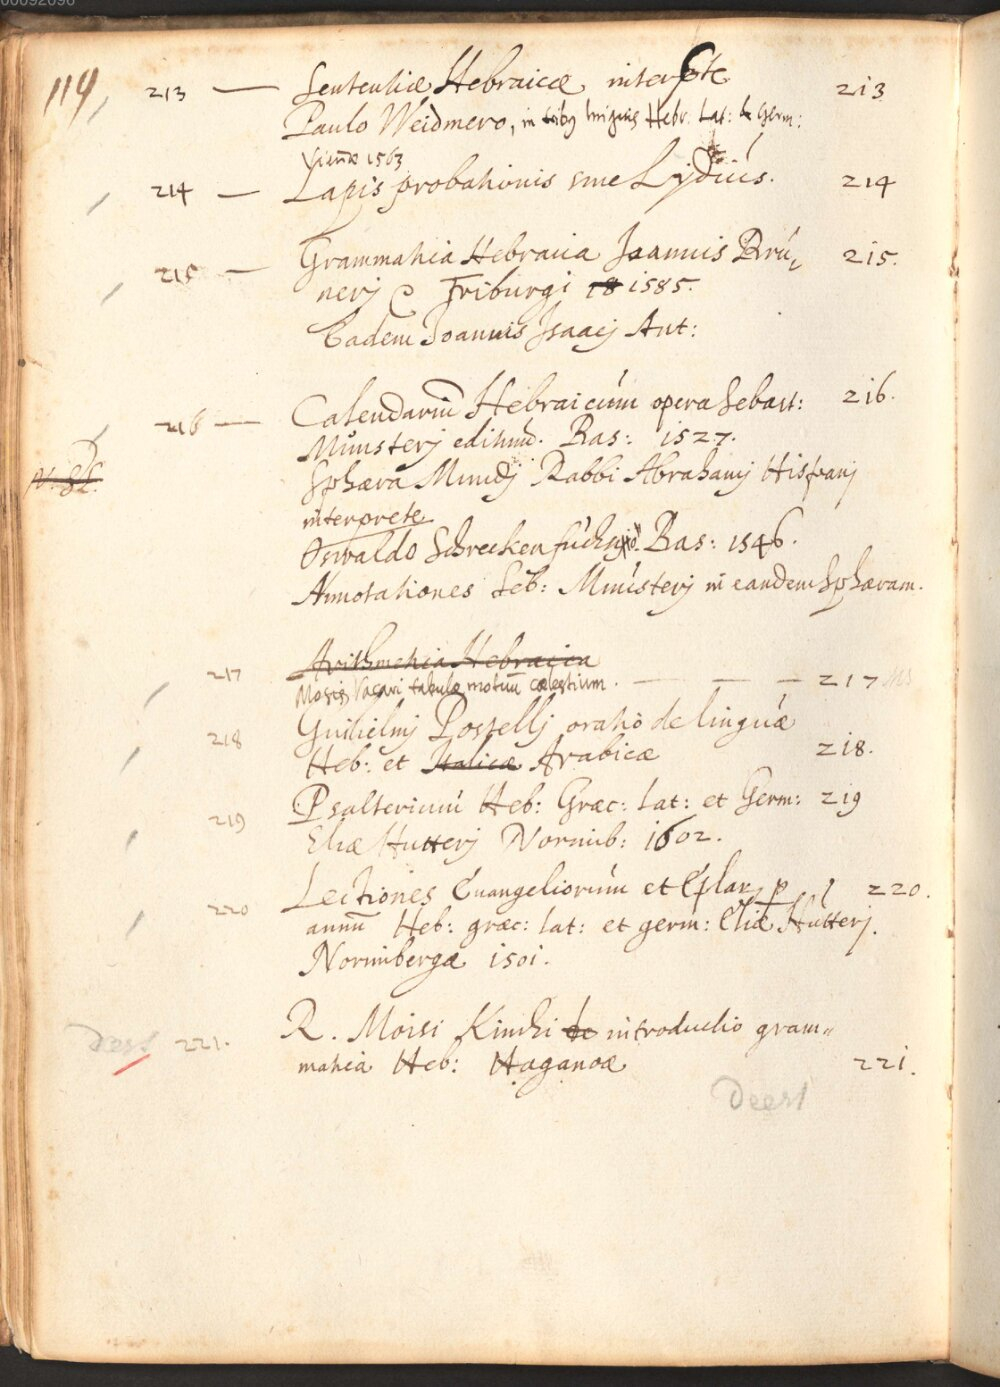 00092098
119
213 — Sententiæ Hebraicæ interpte 213
Paulo Weidmero, in tribg linguis Hebr. Lat: & Germ:
Viennæ 1563
214 — Lapis probationis sive Lydius. 214
215 — Grammatica Hebraica Joannis Bru, 215.
nerj Friburgi 18 1585.
Eadem Joannis Isaacj Ant:
216 — Calendariū Hebraicum opera Sebast: 216.
Munsterj editum. Bas: 1527.
N. 82.
Sphæra Mundj Rabbi Abrahamj Hispanj
interprete
Oswaldo Schreckenfuchsio. Bas: 1546.
Annotationes Seb: Munsterj in eandem Sphæram.
Arithmetica Hebraica
217 Mosis Vacari tabulæ motuū cælestium. — — — 217 MS
Guilielmj Postellj oratio de linguæ
218 Heb: et Italicæ Arabicæ 218.
Psalterium Heb: Græc: lat: et Germ: 219
219 Eliæ Hutterj Norimb: 1602.
Lectiones Euangeliorum et Eplar p 220.
220 annū Heb: græc: lat: et germ: Eliæ Hutterj.
Norimbergæ 1501.
R. Moisi Kimhi de introductio gram=
Deest 221. matica Heb: Haganoæ 221.
Deest